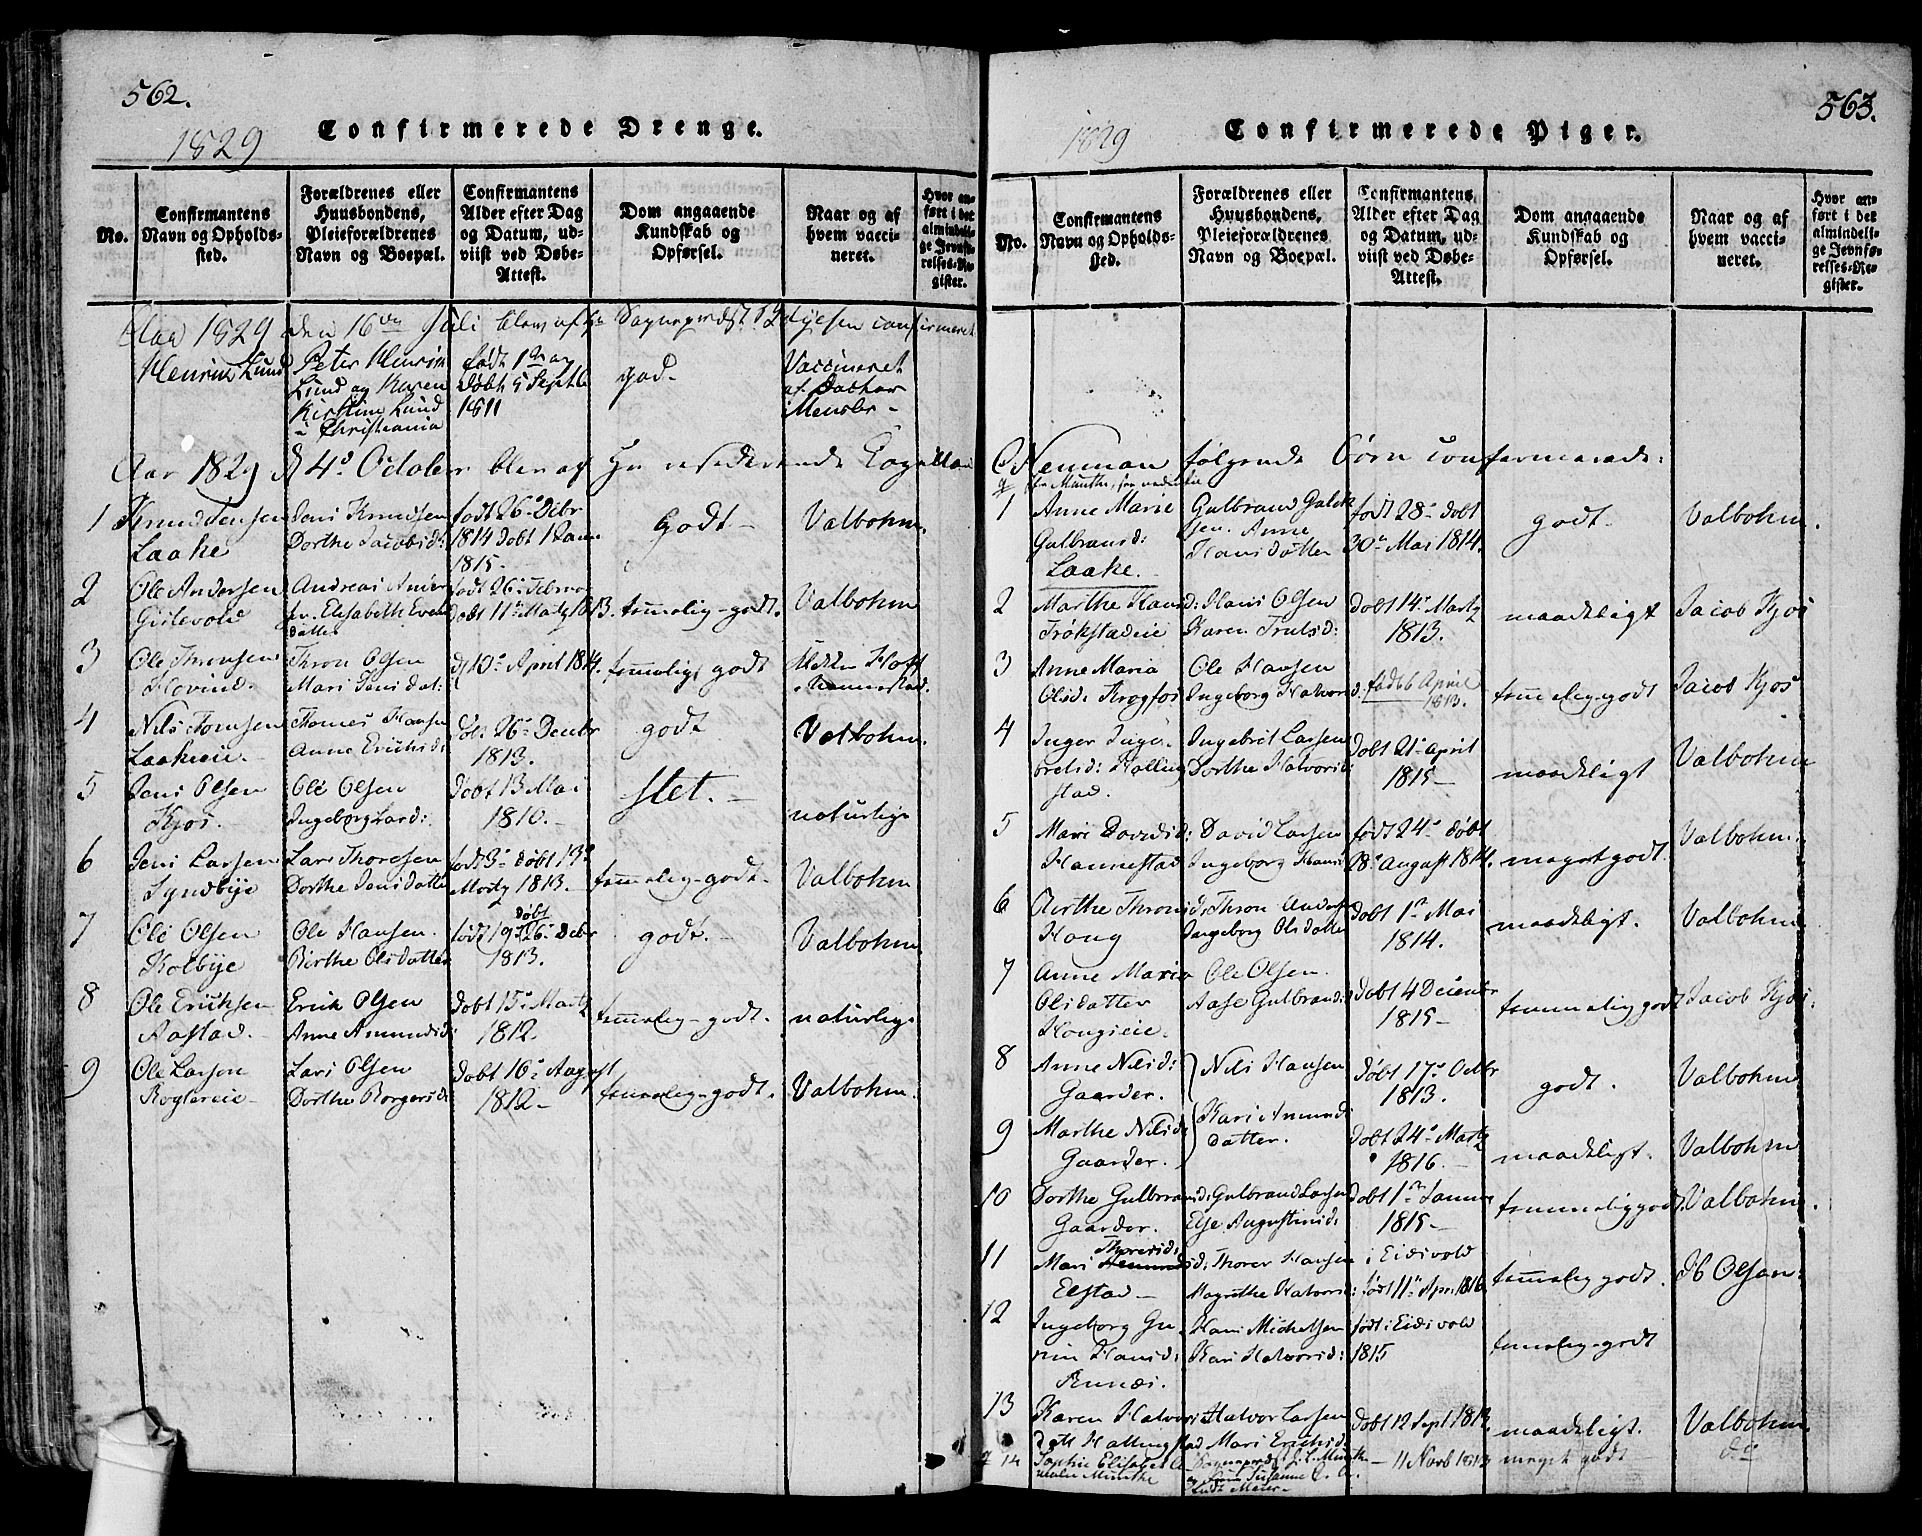 562.
1829 Confirmerede Drenge.
No.
Confirmantens
Navn og Opholds-
sted.
Forældrenes eller
Huusbondens,
Pleieforældrenes
Navn og Boepæl.
Confirmantens
Alder efter Dag
og Datum, ud-
viist ved Døbe-
Attest.
Dom angaaende
Kundskab og
Opførsel.
Naar og af
hvem vacci-
neret.
Hvor an-
ført i det
almindeli-
ge Jevnfø-
relses-Re-
gister.
Aar 1829 den 16de Juli blev af Hr Sognepræst confirmeret
Henrik Lund
Peter Henrik
Lund og Karen
Kirstine Lund
i Christiania
født 1
døbt 5 Septb
1811
god-
Vaccineret
af Doctor
Aar 1829 d 4de October blev af Hr residerende Capellan
1 Knud Jensen
Laake
Jens Knudsen
Dorthe Jacobsd:
født 26 Debr
1814 døbt 1 Janu
1815-
Godt-
Valbohm.
2 Ole Andersen
Gislevold
Andreas Ander
sen. Elisabeth Even
datter
født 26 Februar
døbt 11 Martz 1813.
temmelig-godt.
Valbohm
3 Ole Thronsen
Hovind.
Thron Olsen
Mari Jensdat:
d 10 April 1814.
temmelig godt
4 Nils Tomsen
Laakeeie.
Thomes Hansen
Anne Erichsd:
26 Decbr
1813.
godt
Valbohm.
5 Jens Olsen
Kjos.
Ole Olsen
Ingeborg Larsd:
Døbt 13 Mai
1810.-
slet.-
naturlige
6 Jens Larsen
Lyndbye
Lars Thoresen
Dorthe Jensdatter
født 3 døbt 13
Martz 1813.-
temmelig-godt-
Valbohm
7 Ole Olsen
Kolbye
Ole Hansen.
Birthe Olsdatter
født 19 døbt 26 Debr
1813.
godt.-
Valbohm
8 Ole Erichsen
Aastad.
Erich Olsen
Anne Amundsd:
døbt 15 Martz
1812.
temmelig-godt.
naturlige
9 Ole Larsen
Roglereie-
Lars Olsen
Dorthe Borgersd:
døbt 16 August
1812-
temmelig-godt.
Valbohm.
563.
1829 Confirmerede Piger.
No.
Confirmantens
Navn og Opholds-
sted.
Forældrenes eller
Huusbondens,
Pleieforældrenes
Navn og Boepæl.
Confirmantens
Alder efter Dag
og Datum, ud-
viist ved Døbe-
Attest.
Dom angaaende
Kundskab og
Opførsel.
Naar og af
hvem vacci-
neret.
Hvor an-
ført i det
almindeli-
ge Jevnfø-
relses-Re-
gister.
C Neuman følgende Børn confirmerede:
1 Anne Marie
Gulbransd:
Laake.
Gulbrand Gulbr
sen. Anne
Hansdatter
født 28 døbt
30 Mai 1814.
godt.
Valbohm.
2 Marthe Hansd:
Trøkstadeie
Hans Olsen
Karen Trulsd:
døbt 14 Martz
1813.
maadeligt
Jacob Kjos
3 Anne Maria
Olsd: Krogfos
Ole Hansen
Ingeborg Halvorsd:
født 6 April
1813.
temmelig-godt
Jacob Kjos
4 Inger Inge-
bretsd: Holling
stad.
Ingebret Larsen
Dorthe Halvorsd:
døbt 21 April
1815-
maadeligt
Valbohm
5 Mari Davidsd:
Hannestad
David Larsen
Ingeborg Hansd
født 24 døbt
28 August 1814.
meget godt.
Valbohm.
6 Birthe Thronsd:
Houg
Thron Anders
Ingeborg Olsdatter
døbt 1 Mai
1814.
maadeligt.
Valbohm
7 Anne Maria
Olsdatter
Hougseie.
Ole Olsen.
Aase Gulbransd:
døbt 4 Decembr
1815-
temmelig godt
Jacob Kjos:
8 Anne Nilsd:
Gaarder.
Nils Hansen
Døbt 17 Octbr
1813.
godt.
Valbohm
9 Marthe Nilsd:
Gaarder.
Kari Amunds
datter.
døbt 24 Martz
1816.-
maadeligt.
Valbohm
10 Dorthe Gulbransd:
Gaarder.
Gulbrand Larsen
Else Augustinsd:
døbt 1 Janua
1815-
temmelig godt.
Valbohm.
11 Thoresd:
Mari
Elstad-
Thorer Hansen
Magrethe Halvorsd:
i Eidsvold
født 11 Apr. 1816
temmelig godt.
Ib Olsen.
12 Ingeborg Gu-
rin Hansd:
Hans Michelsen
Kari Halvorsd:
født i Eidsvold
1815
temmelig-godt
13 Karen Halvors
datt Hallingstad
Halvor Larsen
Mari Erichsd:
døbt 12 Sept 1813
maadeligt.
Valbohm.
14 Sophie Elisabeth
Munthe
født Meier-
11 Novb 1813
meget godt
do